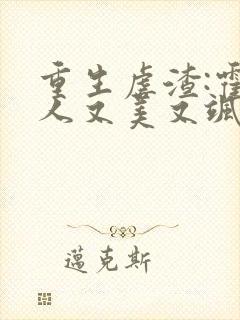 重生虐渣:霍
人又美又飒
邁克斯